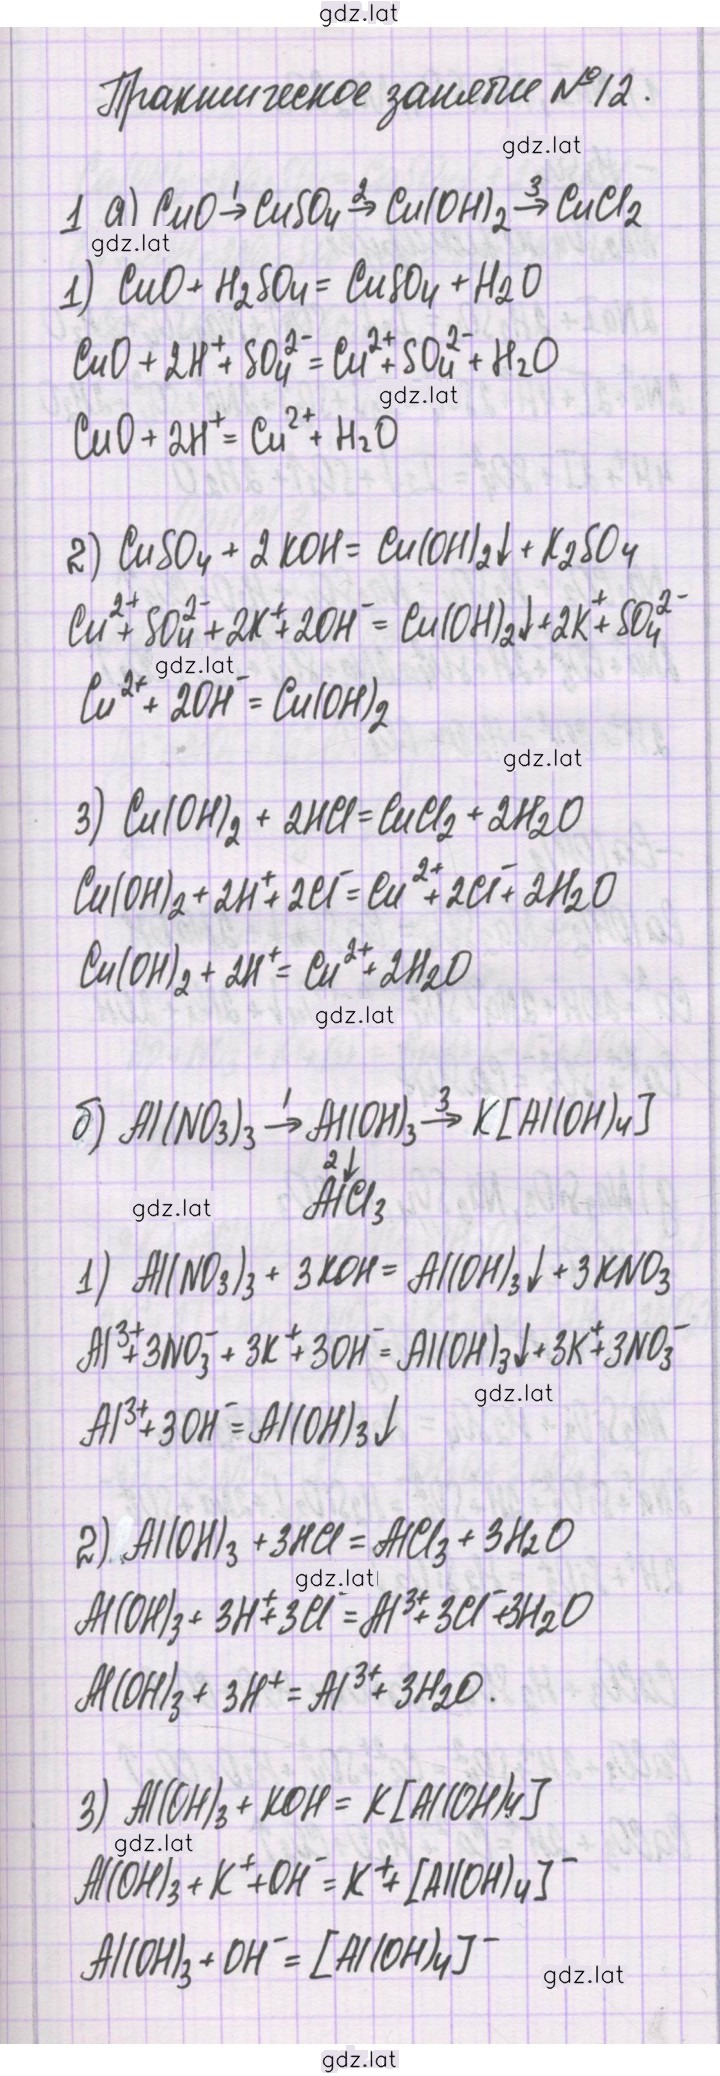 gdz.lat
Практическое занятие №12.
gdz.lat
1 а) CuO →¹ CuSO₄ →² Cu(OH)₂ →³ CuCl₂
gdz.lat
1) CuO + H₂SO₄ = CuSO₄ + H₂O
CuO + 2H⁺ + SO₄²⁻ = Cu²⁺ + SO₄²⁻ + H₂O
gdz.lat
CuO + 2H⁺ = Cu²⁺ + H₂O
2) CuSO₄ + 2KOH = Cu(OH)₂↓ + K₂SO₄
Cu²⁺ + SO₄²⁻ + 2K⁺ + 2OH⁻ = Cu(OH)₂↓ + 2K⁺ + SO₄²⁻
gdz.lat
Cu²⁺ + 2OH⁻ = Cu(OH)₂
gdz.lat
3) Cu(OH)₂ + 2HCl = CuCl₂ + 2H₂O
Cu(OH)₂ + 2H⁺ + 2Cl⁻ = Cu²⁺ + 2Cl⁻ + 2H₂O
Cu(OH)₂ + 2H⁺ = Cu²⁺ + 2H₂O
gdz.lat
б) Al(NO₃)₃ →¹ Al(OH)₃ →³ K[Al(OH)₄]
2↓
AlCl₃
gdz.lat
1) Al(NO₃)₃ + 3KOH = Al(OH)₃↓ + 3KNO₃
Al³⁺ + 3NO₃⁻ + 3K⁺ + 3OH⁻ = Al(OH)₃↓ + 3K⁺ + 3NO₃⁻
gdz.lat
Al³⁺ + 3OH⁻ = Al(OH)₃↓
2) Al(OH)₃ + 3HCl = AlCl₃ + 3H₂O
gdz.lat
Al(OH)₃ + 3H⁺ + 3Cl⁻ = Al³⁺ + 3Cl⁻ + 3H₂O
Al(OH)₃ + 3H⁺ = Al³⁺ + 3H₂O.
3) Al(OH)₃ + KOH = K[Al(OH)₄]
gdz.lat
Al(OH)₃ + K⁺ + OH⁻ = K⁺ + [Al(OH)₄]⁻
Al(OH)₃ + OH⁻ = [Al(OH)₄]⁻
gdz.lat
gdz.lat